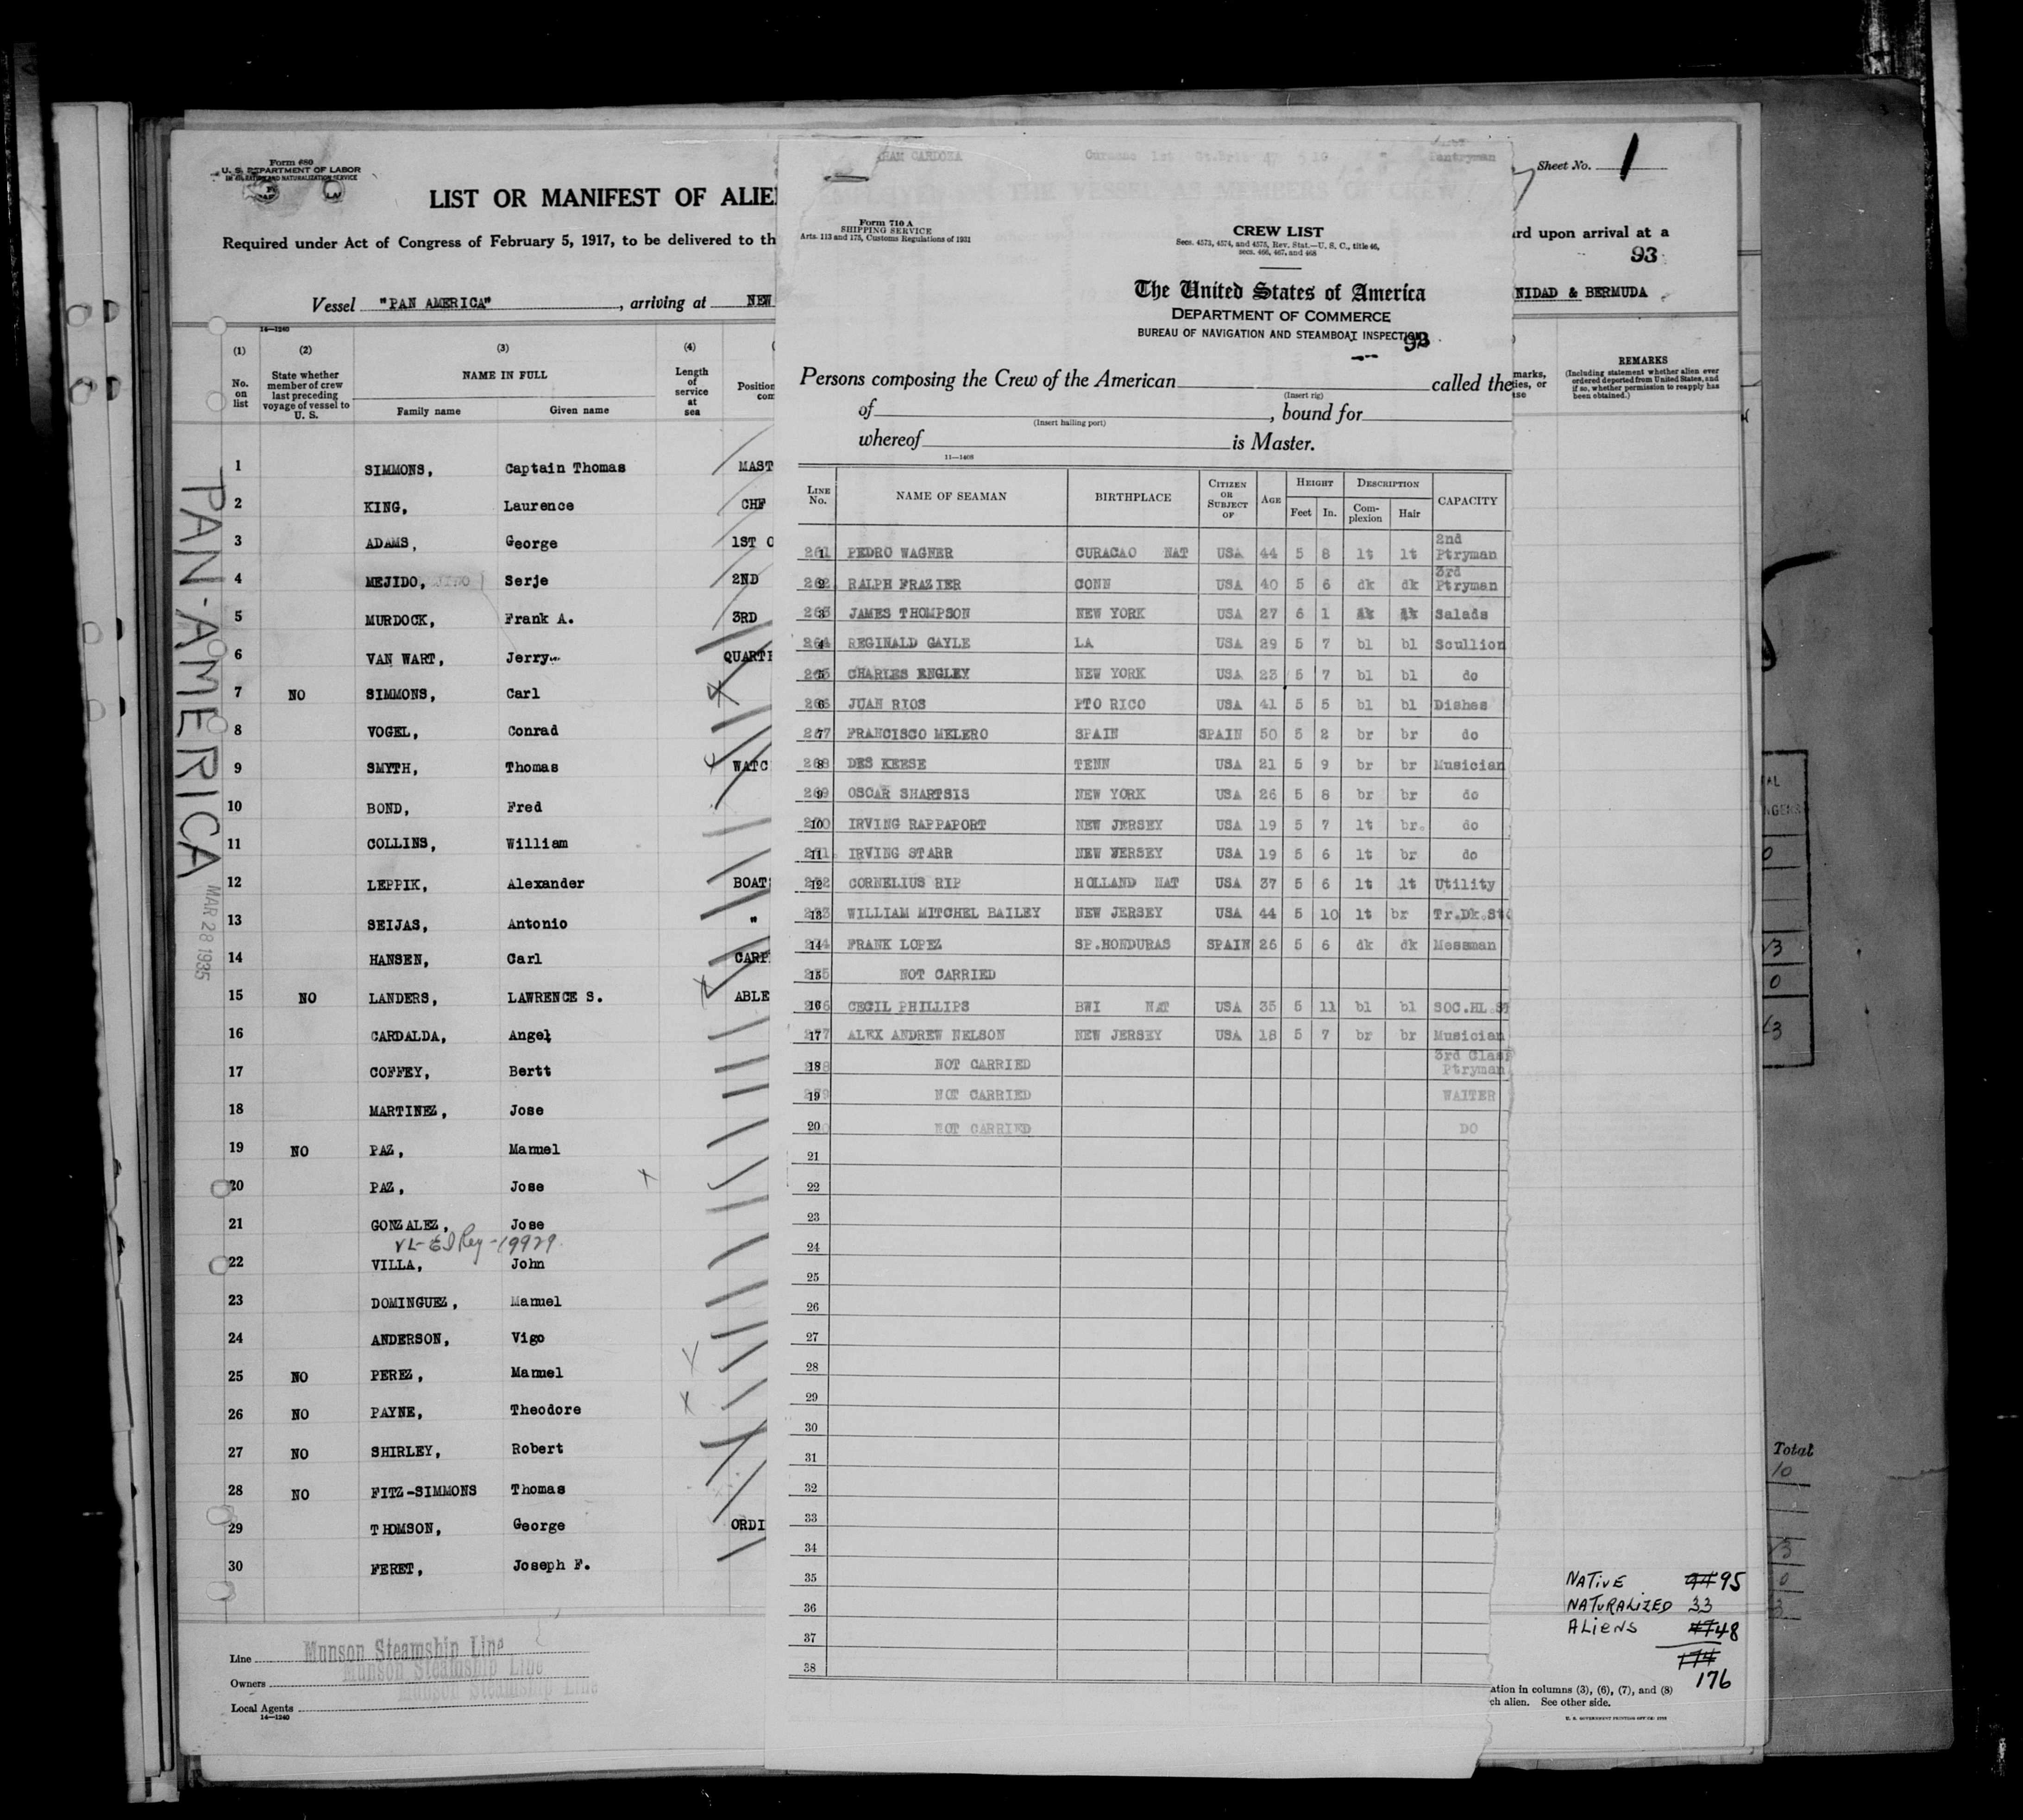 Form 680
U. S. DEPARTMENT OF LABOR
IMMIGRATION AND NATURALIZATION SERVICE
LIST OR MANIFEST OF ALIE
Required under Act of Congress of February 5, 1917, to be delivered to th
Vessel "PAN AMERICA", arriving at NEW
14—1240
(1) (2) (3) (4)
No. on list
State whether member of crew last preceding voyage of vessel to U. S.
NAME IN FULL
Family name Given name
Length of service at sea
Position
com
1 SIMMONS, Captain Thomas MAST
2 KING, Laurence CHF
3 ADAMS, George 1ST O
4 MEJIDO, Serje 2ND
5 MURDOCK, Frank A. 3RD
6 VAN WART, Jerry QUART
7 NO SIMMONS, Carl
8 VOGEL, Conrad
9 SMYTH, Thomas WATC
10 BOND, Fred
11 COLLINS, William
12 LEPPIK, Alexander BOAT
13 SEIJAS, Antonio "
14 HANSEN, Carl CARP
15 NO LANDERS, LAWRENCE S. ABLE
16 CARDALDA, Angel
17 COFFEY, Bertt
18 MARTINEZ, Jose
19 NO PAZ, Manuel
20 PAZ, Jose
21 GONZALEZ, Jose
22 VILLA, John
23 DOMINGUEZ, Manuel
24 ANDERSON, Vigo
25 NO PEREZ, Manuel
26 NO PAYNE, Theodore
27 NO SHIRLEY, Robert
28 NO FITZ-SIMMONS Thomas
29 THOMSON, George ORDI
30 FERET, Joseph F.
PAN-AMERICA
MAR 28 1935
Line Munson Steamship Line
Owners Munson Steamship Line
Local Agents Munson Steamship Line
14—1240
Form 710 A
SHIPPING SERVICE
Arts. 113 and 175, Customs Regulations of 1931
CREW LIST
Secs. 4573, 4574, and 4575, Rev. Stat.—U. S. C., title 46,
secs. 466, 467, and 468
The United States of America
DEPARTMENT OF COMMERCE
BUREAU OF NAVIGATION AND STEAMBOAT INSPECTION
93
Persons composing the Crew of the American called the
(Insert rig)
of , bound for
(Insert hailing port)
whereof is Master.
11—1408
LINE No. NAME OF SEAMAN BIRTHPLACE CITIZEN OR SUBJECT OF AGE HEIGHT Feet In. DESCRIPTION Complexion Hair CAPACITY
1 PEDRO WAGNER CURACAO NAT USA 44 5 8 lt lt 2nd Ptryman
2 RALPH FRAZIER CONN USA 40 5 6 dk dk 3rd Ptryman
3 JAMES THOMPSON NEW YORK USA 27 6 1 Salads
4 REGINALD GAYLE LA USA 29 5 7 bl bl Scullion
5 CHARLES ENGLEY NEW YORK USA 23 5 7 bl bl do
6 JUAN RIOS PTO RICO USA 41 5 5 bl bl Dishes
7 FRANCISCO MELERO SPAIN SPAIN 50 5 2 br br do
8 DES KEESE TENN USA 21 5 9 br br Musician
9 OSCAR SHARTSIS NEW YORK USA 26 5 8 br br do
10 IRVING RAPPAPORT NEW JERSEY USA 19 5 7 lt br. do
11 IRVING STARR NEW JERSEY USA 19 5 6 lt br do
12 CORNELIUS RIP HOLLAND NAT USA 37 5 6 lt lt Utility
13 WILLIAM MITCHEL BAILEY NEW JERSEY USA 44 5 10 lt br Tr.Dk.St
14 FRANK LOPEZ SP.HONDURAS SPAIN 26 5 6 dk dk Messman
15 NOT CARRIED
16 CECIL PHILLIPS BWI NAT USA 35 5 11 bl bl SOC.HL.ST
17 ALEX ANDREW NELSON NEW JERSEY USA 18 5 7 br br Musician
18 NOT CARRIED 3rd Clas Ptryman
19 NOT CARRIED WAITER
20 NOT CARRIED DO
21
22
23
24
25
26
27
28
29
30
31
32
33
34
35
36
37
38
Sheet No. 1
rd upon arrival at a
93
NIDAD & BERMUDA
REMARKS
(Including statement whether alien ever ordered deported from United States, and if so, whether permission to reapply has been obtained.)
NATIVE 95
NATURALIZED 33
ALIENS 48
176
ation in columns (3), (6), (7), and (8)
ch alien. See other side.
Total
10